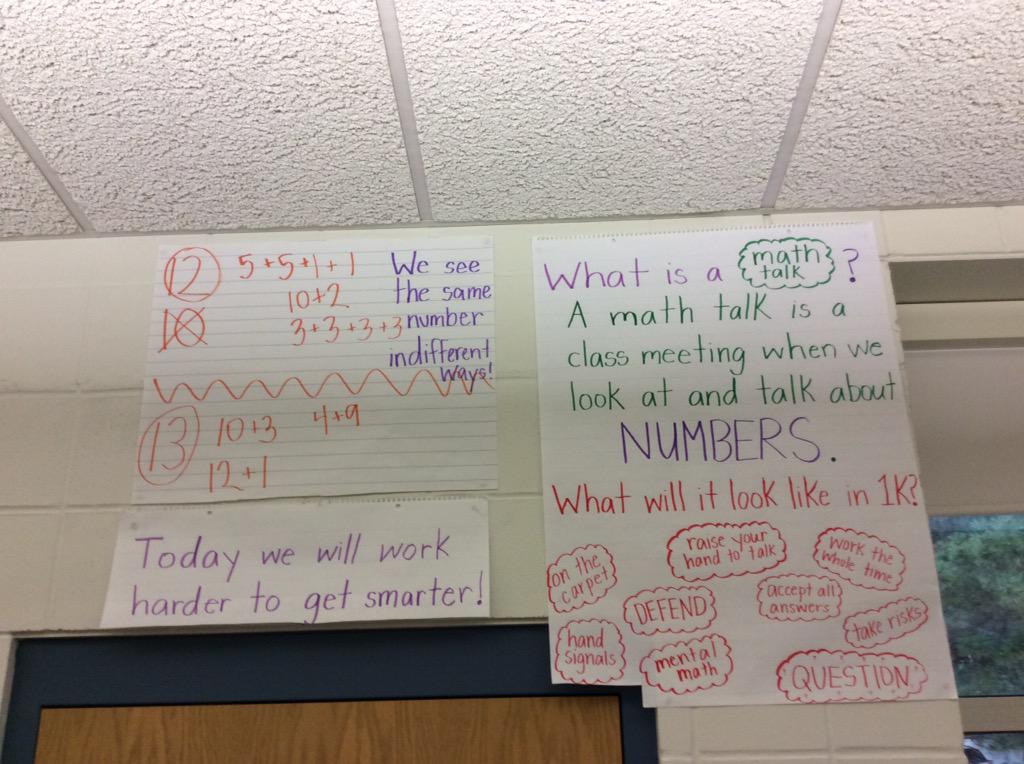 12 5+5+1+1
10+2
10 3+3+3+3
We see
the same
number
indifferent
ways!
13 10+3 4+9
12+1
Today we will work
harder to get smarter!
What is a math talk?
A math talk is a
class meeting when we
look at and talk about
NUMBERS.
What will it look like in 1K?
on the
carpet
raise your
hand to talk
work the
whole time
DEFEND
accept all
answers
take risks
hand
signals
mental
math
QUESTION